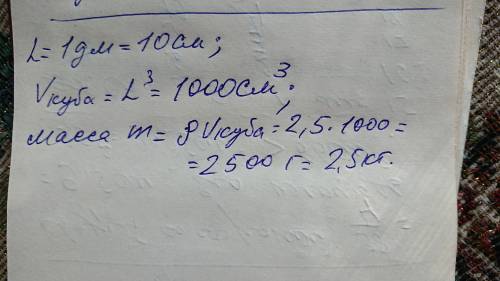 L = 1дм = 10см;
Vкуба = L³ = 1000см³;
масса m = ρVкуба = 2,5·1000 =
= 2500 г = 2,5кг.